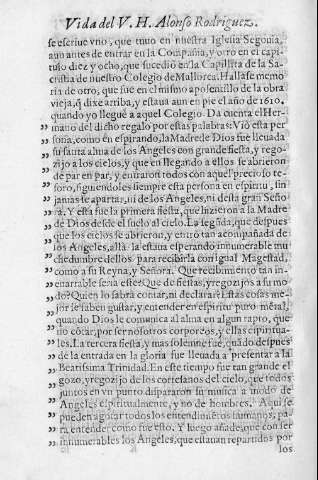 Vida del V. H. Alonso Rodriguez.
se escriue vno, que tuuo en nuestra Iglesia Segouia,
aun antes de entrar en la Compañia, y otro en el capi-
tulo diez y ocho, que sucediò en la Capillita de la Sa-
cristia de nuestro Colegio de Mallorca. Hallase memo
ria de otro, que fue en el mismo aposentillo de la obra
vieja, q̃ dixe arriba, y estaua aun en pie el año de 1610.
quando yo lleguè a aquel Colegio. Da cuenta el Her-
„ mano del dicho regalo por estas palabras: Viò esta per
„ sona, como en espirando, la Madre de Dios fue lleuada
„ su santa alma de los Angeles con grande fiesta, y rego-
„ zijo a los cielos, y que en llegando a ellos se abrieron
„ de par en par, y entraron todos con aquel precioso te-
„ soro, siguiendoles siempre esta persona en espiritu, sin
„ jamas se apartar, ni de los Angeles, ni desta gran Seño
„ ra. Y esta fue la primera fiesta, que hizieron a la Madre
„ de Dios desde el suelo al cielo. La segũda, que despues
„ que los cielos se abrieron, y entrò tan acompañada de
„ los Angeles, allà la estaua esperando innumerable mu
„ chedumbre dellos para recibirla con igual Magestad,
„ como a su Reyna, y Señora. Que recibimiento tan in-
„ enarrable seria este? Que de fiestas, y regozijos a su mo
„ do? Quien lo sabrà contar, ni declarar? Estas cosas me-
„ jor se saben gustar, y entender en espiritu puro mẽtal,
„ quando Dios le comunica al alma en algun rapto, que
„ no cõtar, por ser nosotros corporeos, y ellas espiritua-
„ les. La tercera fiesta, y mas solemne fue, quãdo despues
„ de la entrada en la gloria fue lleuada a presentar a la
„ Beatissima Trinidad. En este tiempo fue tan grande el
„ gozo, y regozijo de los cortesanos del cielo, que todos
„ juntos en vn punto dispararon su musica a modo de
„ Angeles espiritualmente, y no de hombres. Aqui se
„ pueden agotar todos los entendimientos humanos, pa
„ ra entender como fue esto. Y luego añade, que con ser
„ innumerables los Angeles, que estauan repartidos por
los